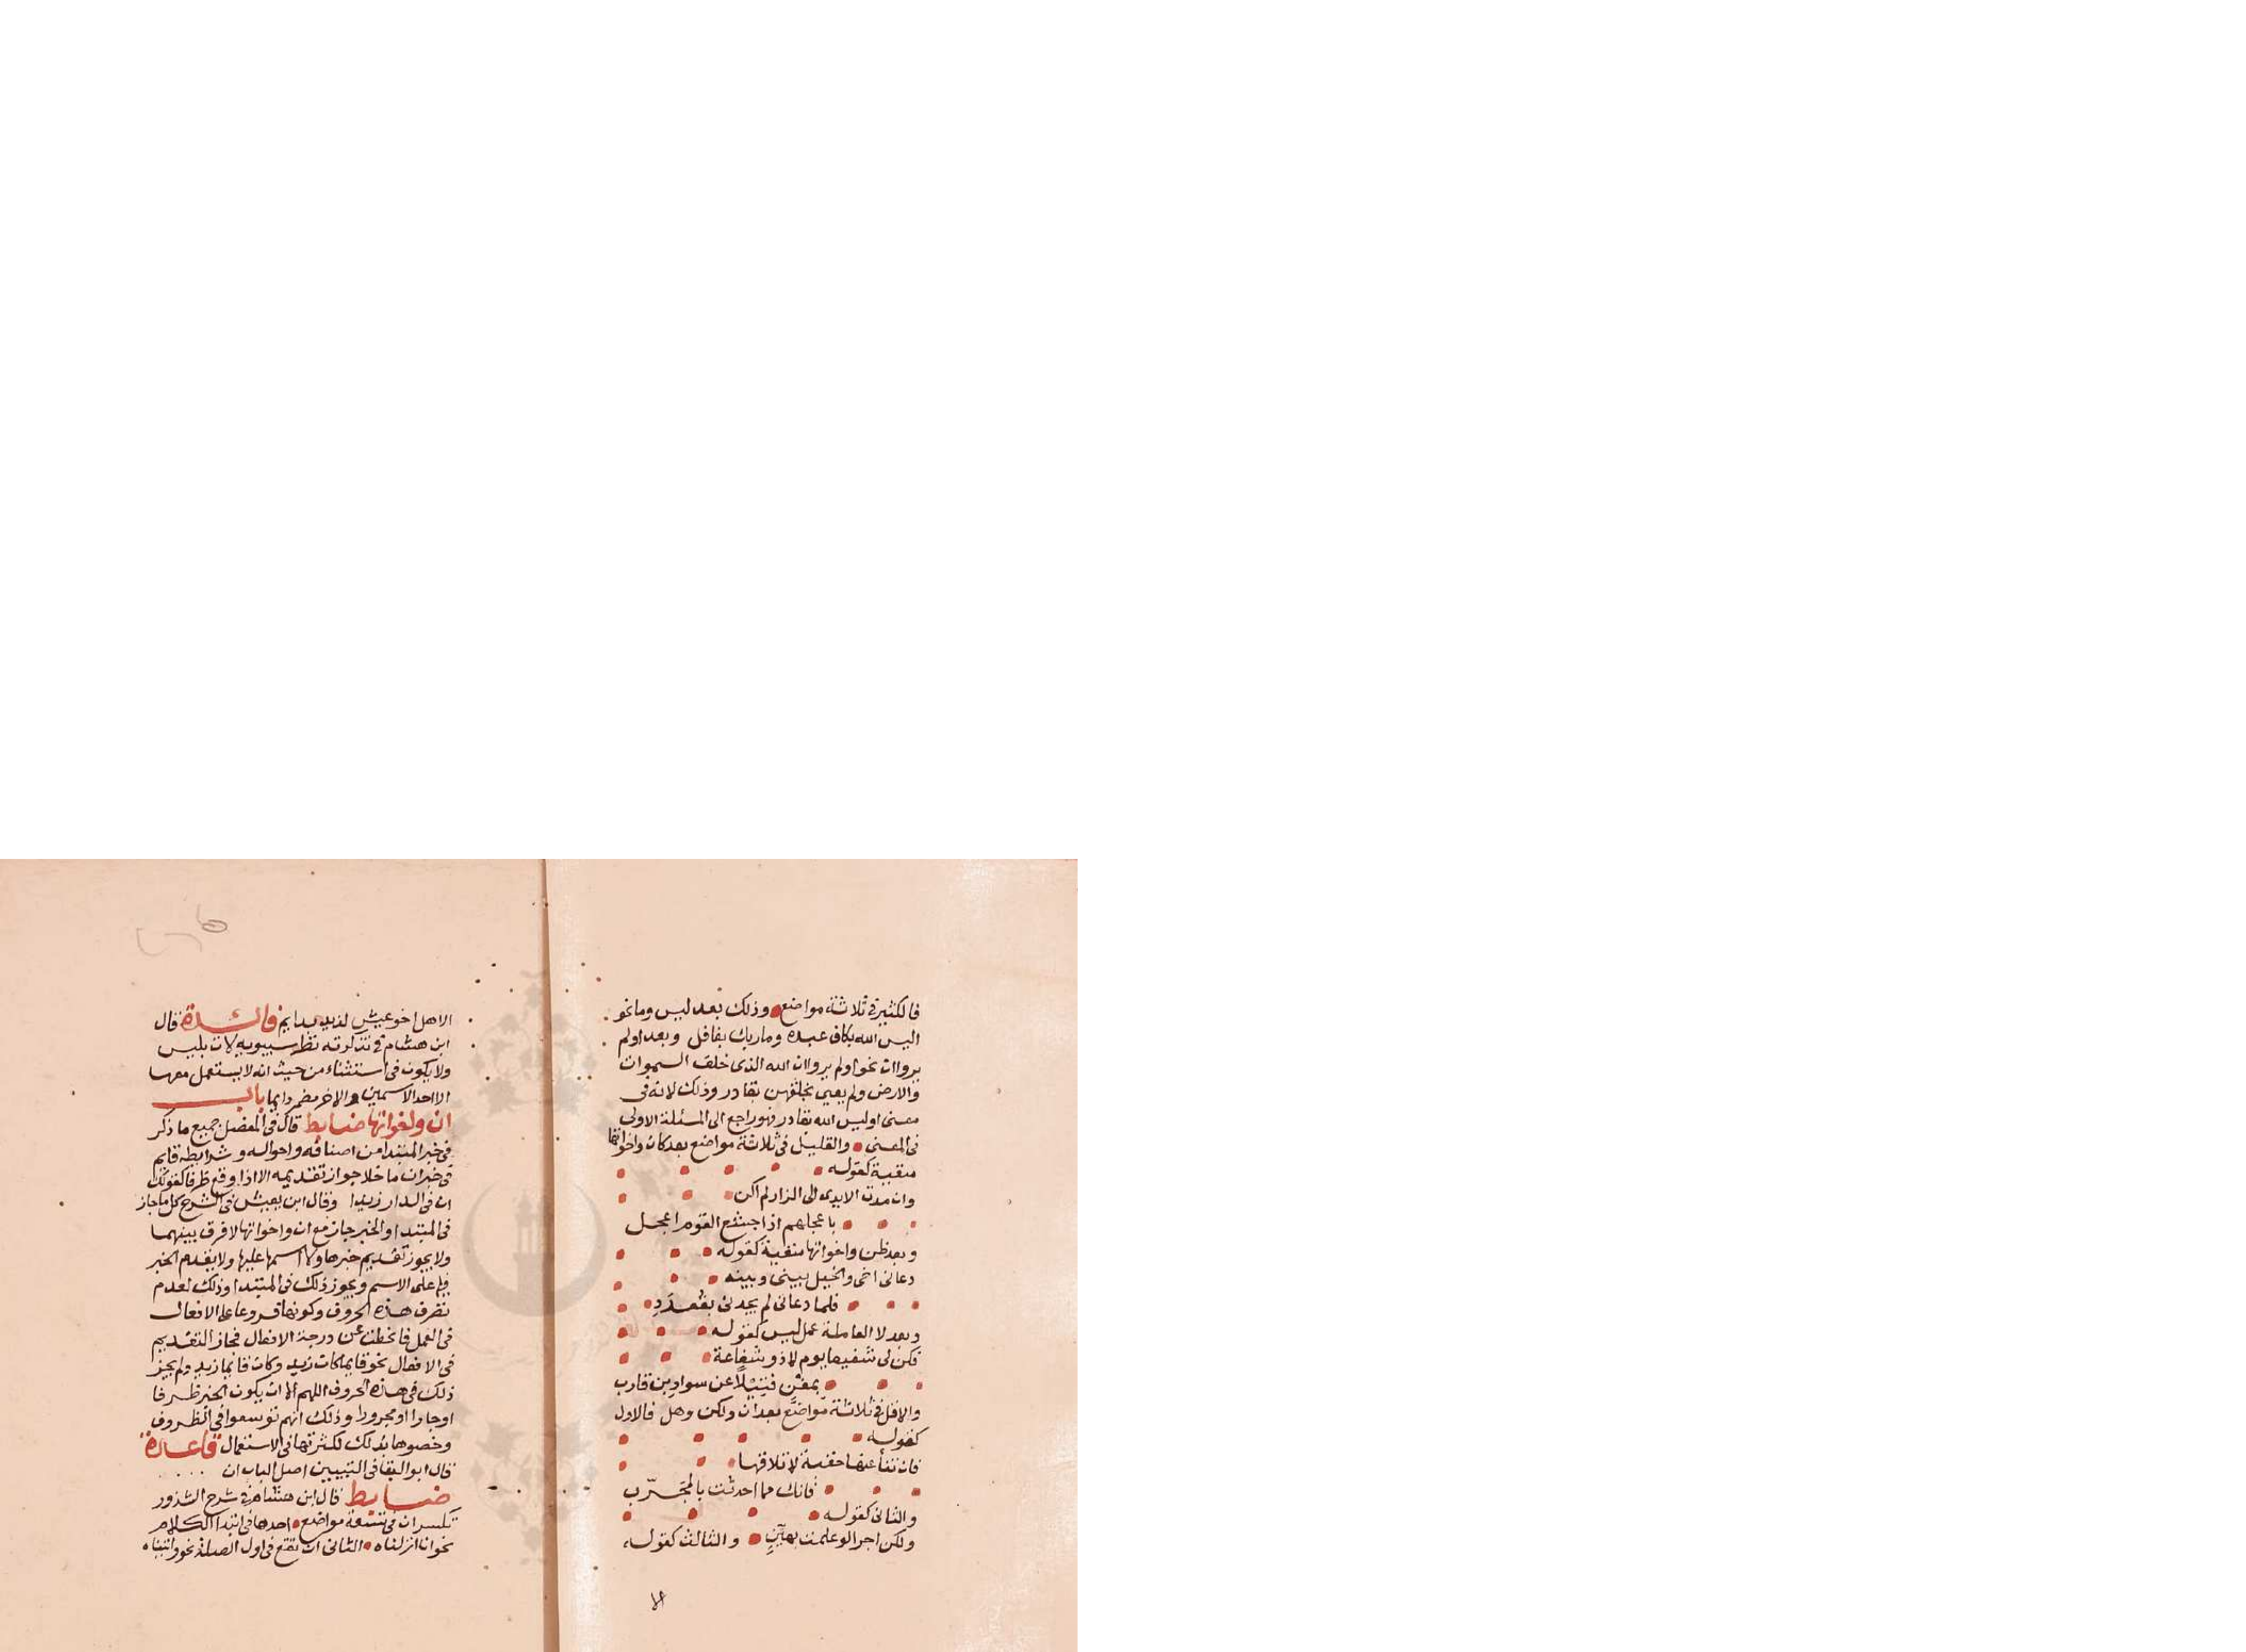 فالكثير في ثلاثة مواضع وذلك بعد ليس وما نحو
اليس الله بكاف عبده وما ربك بغافل وبعد اولم
يروا ان نحو اولم يروا ان الله الذى خلق السموات
والارض ولم يعي بخلقهن بقادر وذلك لانه فى
معنى اوليس الله بقادر فهو راجع الى المسئلة الاولى
فى المعنى والقليل فى ثلاثة مواضع بعد كان واخواتها
منفية كقوله
وان مدت الايدى الى الزاد لم اكن
باعجلهم اذ اجشع القوم اعجل
وبعد ظن واخواتها منفية كقوله
دعانى اخى والخيل بينى وبينه
فلما دعانى لم يجدنى بقُعدَدِ
وبعد لا العاملة عمل ليس كقوله
فكن لى شفيعا يوم لا ذو شفاعة
بمغن فتيلاً عن سواد بن قارب
والاقل فى ثلاثة مواضع بعد ان ولكن وهل فالاول
كقوله
فان تنأ عنها حقبة لا تلاقها
فانك مما احدثت بالمجَرّب
والثانى كقوله
ولكن اجرا لو علمت بهيّنٍ والثالث كقوله
الا هل اخو عيش لذيذ بدايم فائدة قال
ابن هشام فى تذكرته نظر سيبويه لات بليس
ولا يكون فى استثناء من حيث انه لا يستعمل معها
الا احد الاسمين والاخر مضمر دايما باب
ان واخواتها ضابط قال فى المفضل جميع ما ذكر
فى خبر المبتدا من اصنافه واحواله وشرائطه قايم
فى خبر ان ما خلا جواز تقديمه الا اذا وقع ظرفا كقولك
ان فى الدار زيدا وقال ابن يعيش فى الشرح كل ما جاز
فى المبتدا والخبر جاز مع ان واخواتها لا فرق بينهما
ولا يجوز تقديم خبرها ولا اسمها عليها ولا يقدم الخبر
فيها على الاسم ويجوز ذلك فى المبتدا وذلك لعدم
تصرف هذه الحروف وكونها فروعا على الافعال
فى العمل فانحطت عن درجة الافعال فجاز التقديم
فى الافعال نحو قايما كان زيد وكان قايما زيد ولم يجز
ذلك فى هذه الحروف اللهم الا ان يكون الخبر ظرفا
او جارا او مجرورا وذلك انهم توسعوا فى الظروف
وخصوها بذلك لكثرتها فى الاستعمال قاعدة
قال ابو البقا فى التبيين اصل الباب ان
ضابط قال ابن هشام فى شرح الشذور
تكسر ان فى تسعة مواضع احدها فى ابتدا الكلام
نحو انا انزلناه الثانى ان تقع فى اول الصلة نحو واتيناه